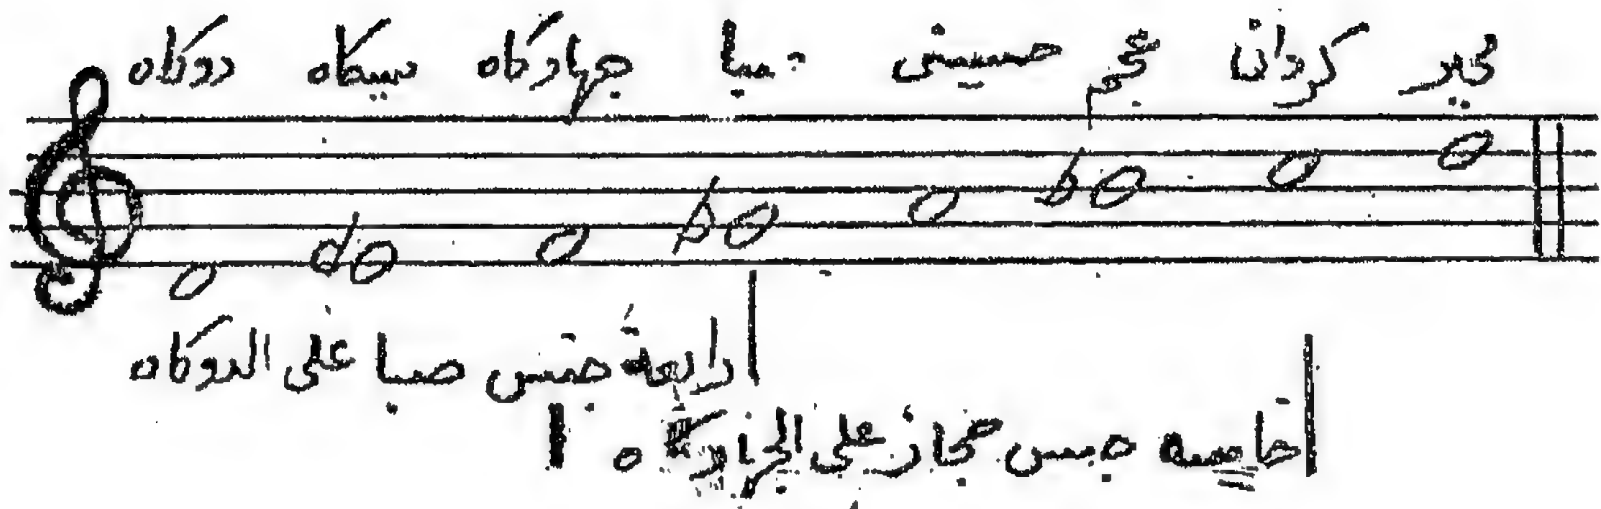 دوكاه سيكاه جهاركاه صبا حسيني عجم كردان محير
رابعة جنس صبا على الدوكاه
خامسه جنس حجاز على الجهاركاه